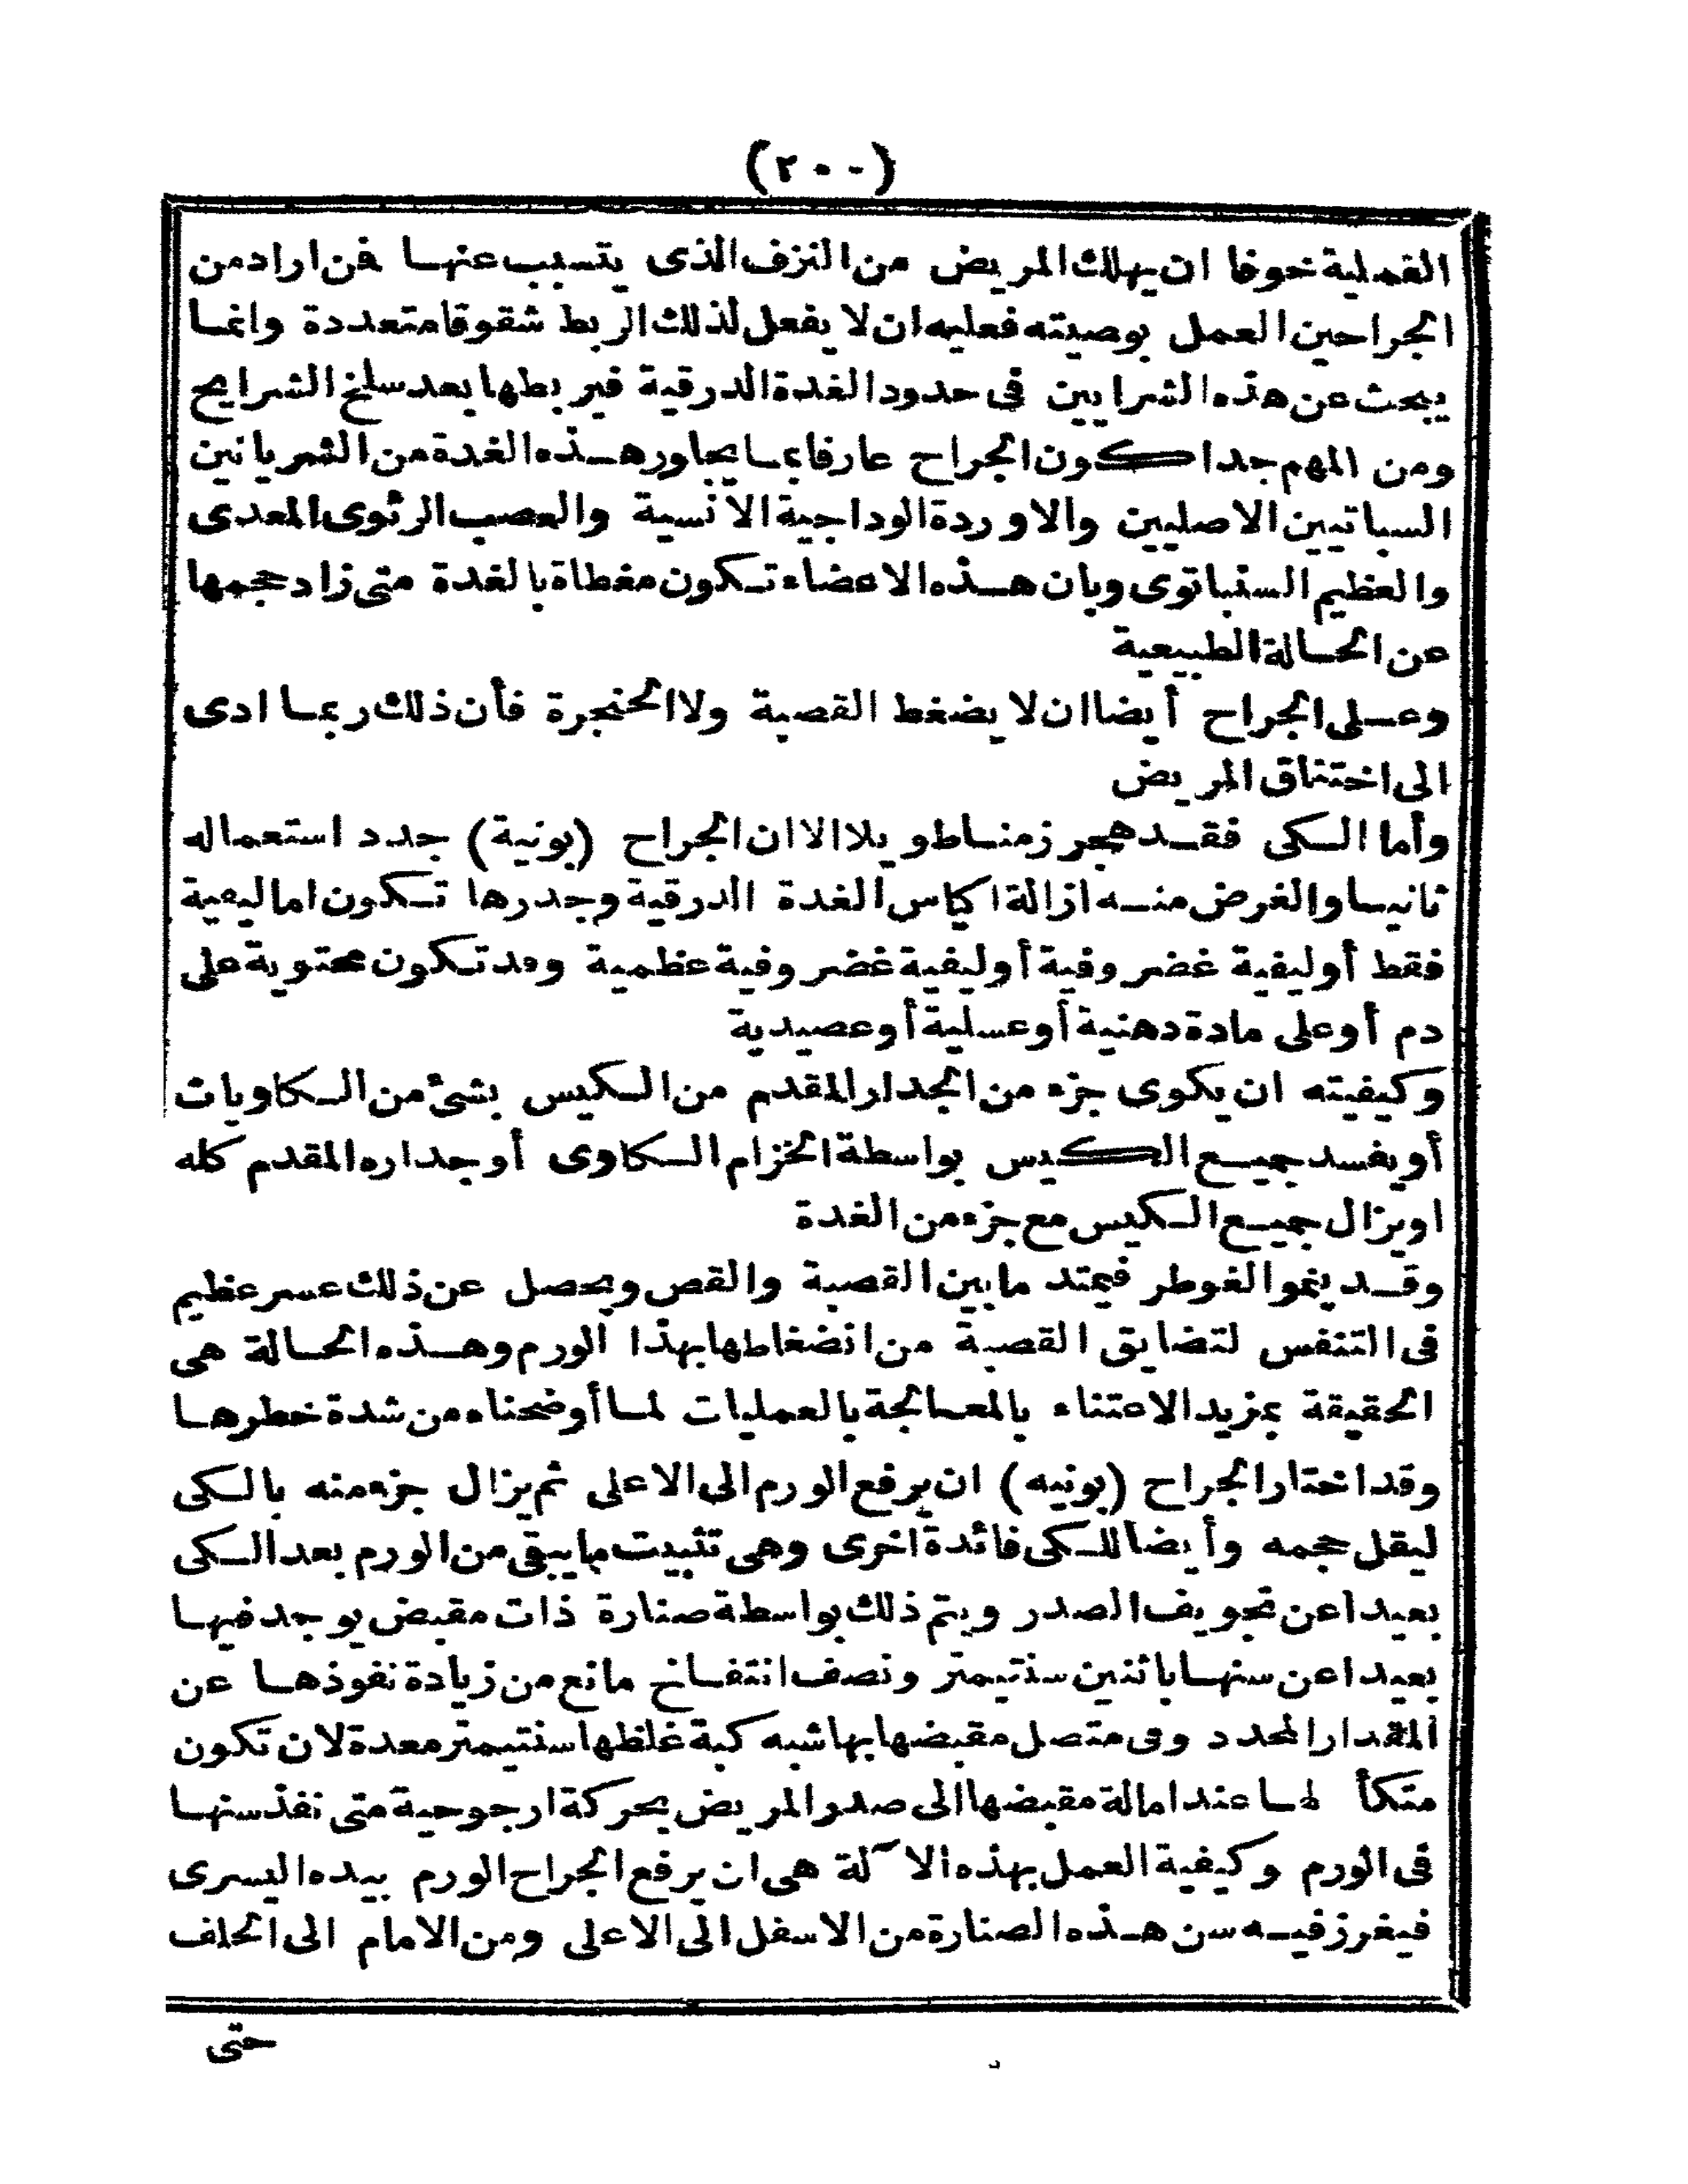 (٢٠٠)
العملية خوفا ان يهلك المريض من النزف الذى يتسبب عنها فمن اراد من
الجراحين العمل بوصيته فعليه ان لا يفعل لذلك الربط شقوقا متعددة وانما
يبحث عن هذه الشرايين فى حدود الغدة الدرقية فيربطها بعد سلخ الشرايح
ومن المهم جدا كون الجراح عارفا بما يجاور هذه الغدة من الشريانين
السباتيين الاصليين والاوردة الوداجية الانسية والعصب الرئوى المعدى
والعظيم السنباتوى وبان هذه الاعضاء تكون مغطاة بالغدة متى زاد حجمها
عن الحالة الطبيعية
وعلى الجراح أيضا ان لا يضغط القصبة ولا الحنجرة فأن ذلك ربما ادى
الى اختناق المريض
وأما الكى فقد هجر زمنا طويلا الا ان الجراح (بونية) جدد استعماله
ثانيا والغرض منه ازالة اكياس الغدة الدرقية وجدرها تكون اما ليفية
فقط أوليفية غضروفية أوليفية غضروفية عظمية وقد تكون محتوية على
دم أوعلى مادة دهنية أوعسلية أوعصيدية
وكيفيته ان يكوى جزء من الجدار المقدم من الكيس بشئ من الكاويات
أويفسد جميع الكيس بواسطة الخزام الكاوى أوجداره المقدم كله
اويزال جميع الكيس مع جزء من الغدة
وقد ينمو الغوطر فيمتد مابين القصبة والقص ويحصل عن ذلك عسر عظيم
فى التنفس لتضايق القصبة من انضغاطها بهذا الورم وهذه الحالة هى
الحقيقة بمزيد الاعتناء بالمعالجة بالعمليات لما أوضحناه من شدة خطرها
وقد اختار الجراح (بونيه) ان يرفع الورم الى الاعلى ثم يزال جزء منه بالكى
ليقل حجمه وأيضا للكى فائدة اخرى وهى تثبيت ما يبقى من الورم بعد الكى
بعيدا عن تجويف الصدر ويتم ذلك بواسطة صنارة ذات مقبض يوجد فيها
بعيدا عن سنها باثنين سنتيمتر ونصف انتفاخ مانع من زيادة نفوذها عن
المقدار المحدد وفى متصل مقبضها بها شبه كبة غلظها سنتيمتر معدة لان تكون
متكأ لها عند امالة مقبضها الى صدر المريض بحركة ارجوحية متى نفذ سنها
فى الورم وكيفية العمل بهذه الآلة هى ان يرفع الجراح الورم بيده اليسرى
فيغرز فيه سن هذه الصنارة من الاسفل الى الاعلى ومن الامام الى الخلف
حتى